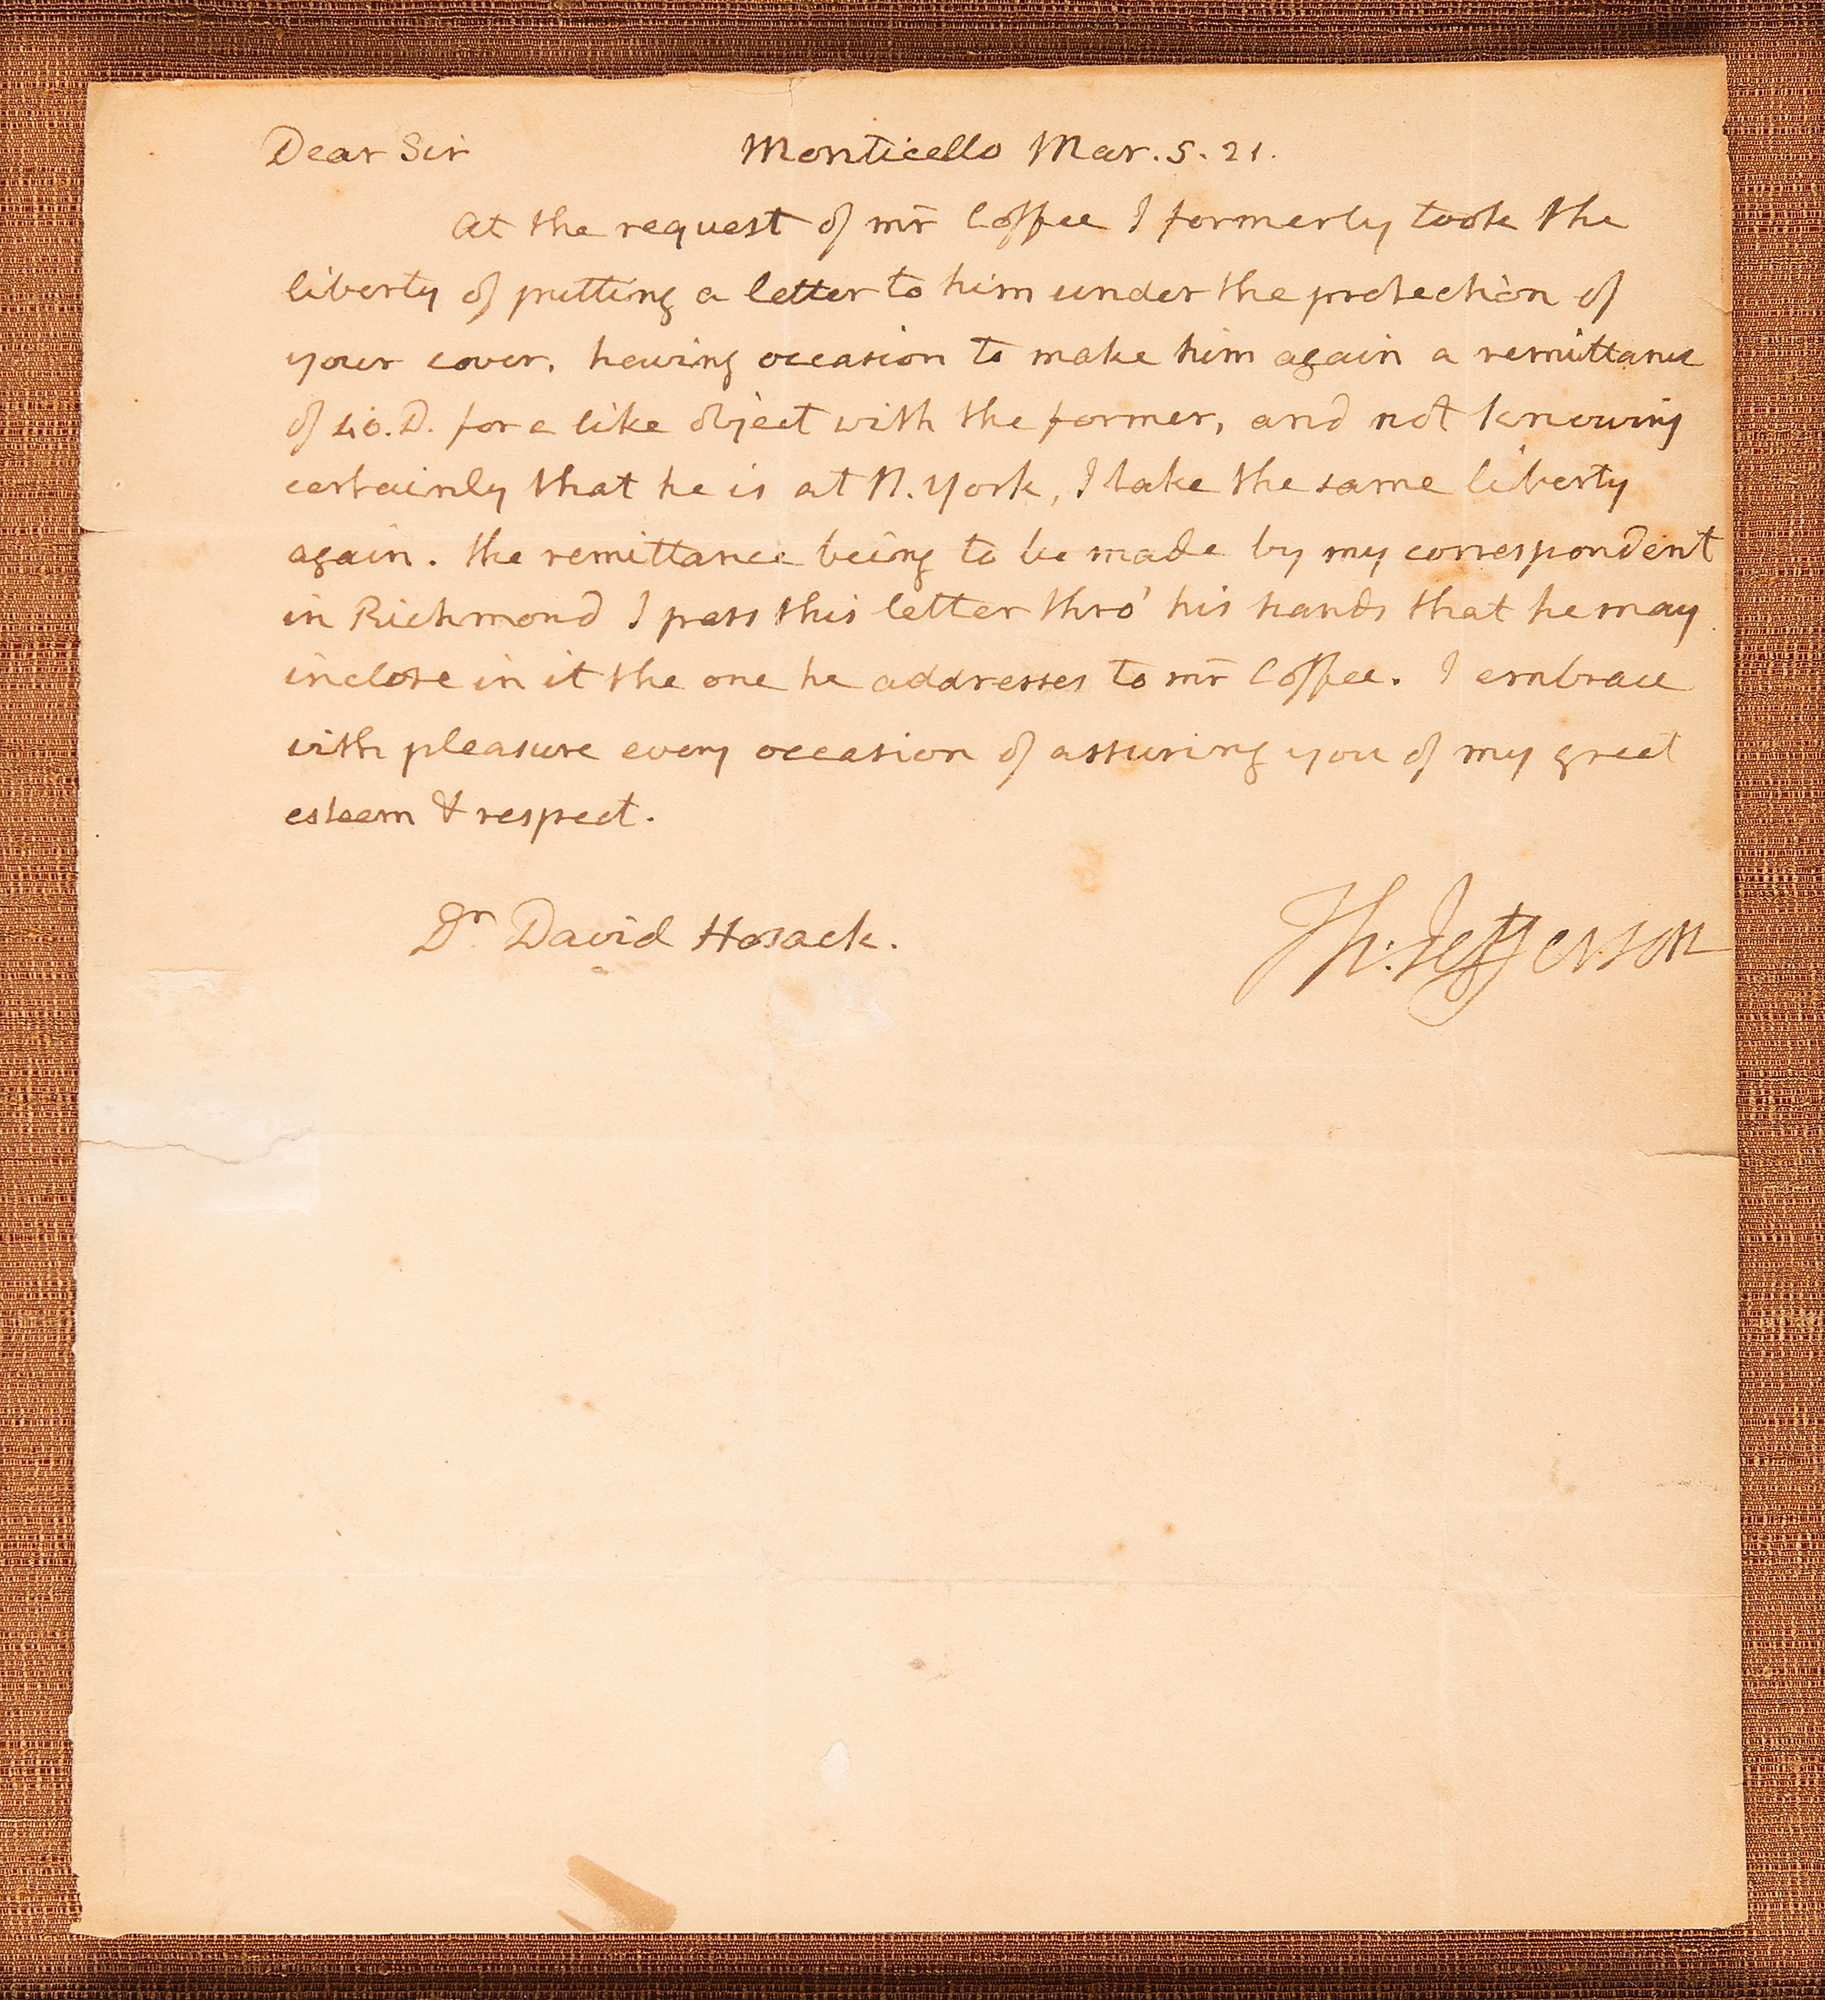 Dear Sir Monticello Mar. 5. 21.
At the request of mr Coffee I formerly took the
liberty of putting a letter to him under the protection of
your cover. having occasion to make him again a remittance
of 40. D. for a like object with the former, and not knowing
certainly that he is at N. York, I take the same liberty
again. the remittance being to be made by my correspondent
in Richmond I pass this letter thro' his hands that he may
inclose in it the one he addresses to mr Coffee. I embrace
with pleasure every occasion of assuring you of my great
esteem & respect.
Dr David Hosack. Th: Jefferson